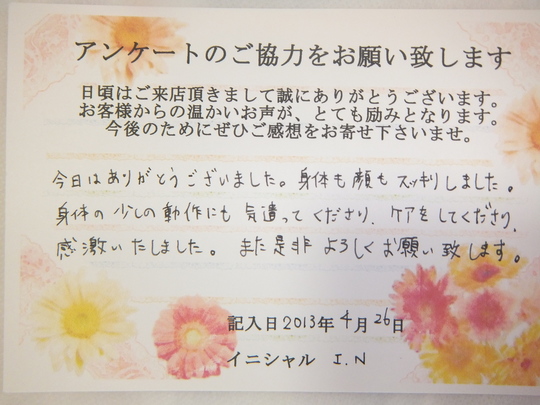 アンケートのご協力をお願い致します
日頃はご来店頂きまして誠にありがとうございます。
お客様からの温かいお声が、とても励みとなります。
今後のためにぜひご感想をお寄せ下さいませ。
今日はありがとうございました。身体も顔もスッキリしました。
身体の少しの動作にも気遣ってくださり、ケアをしてくださり、
感激いたしました。また是非よろしくお願い致します。
記入日2013年4月26日
イニシャル I.N